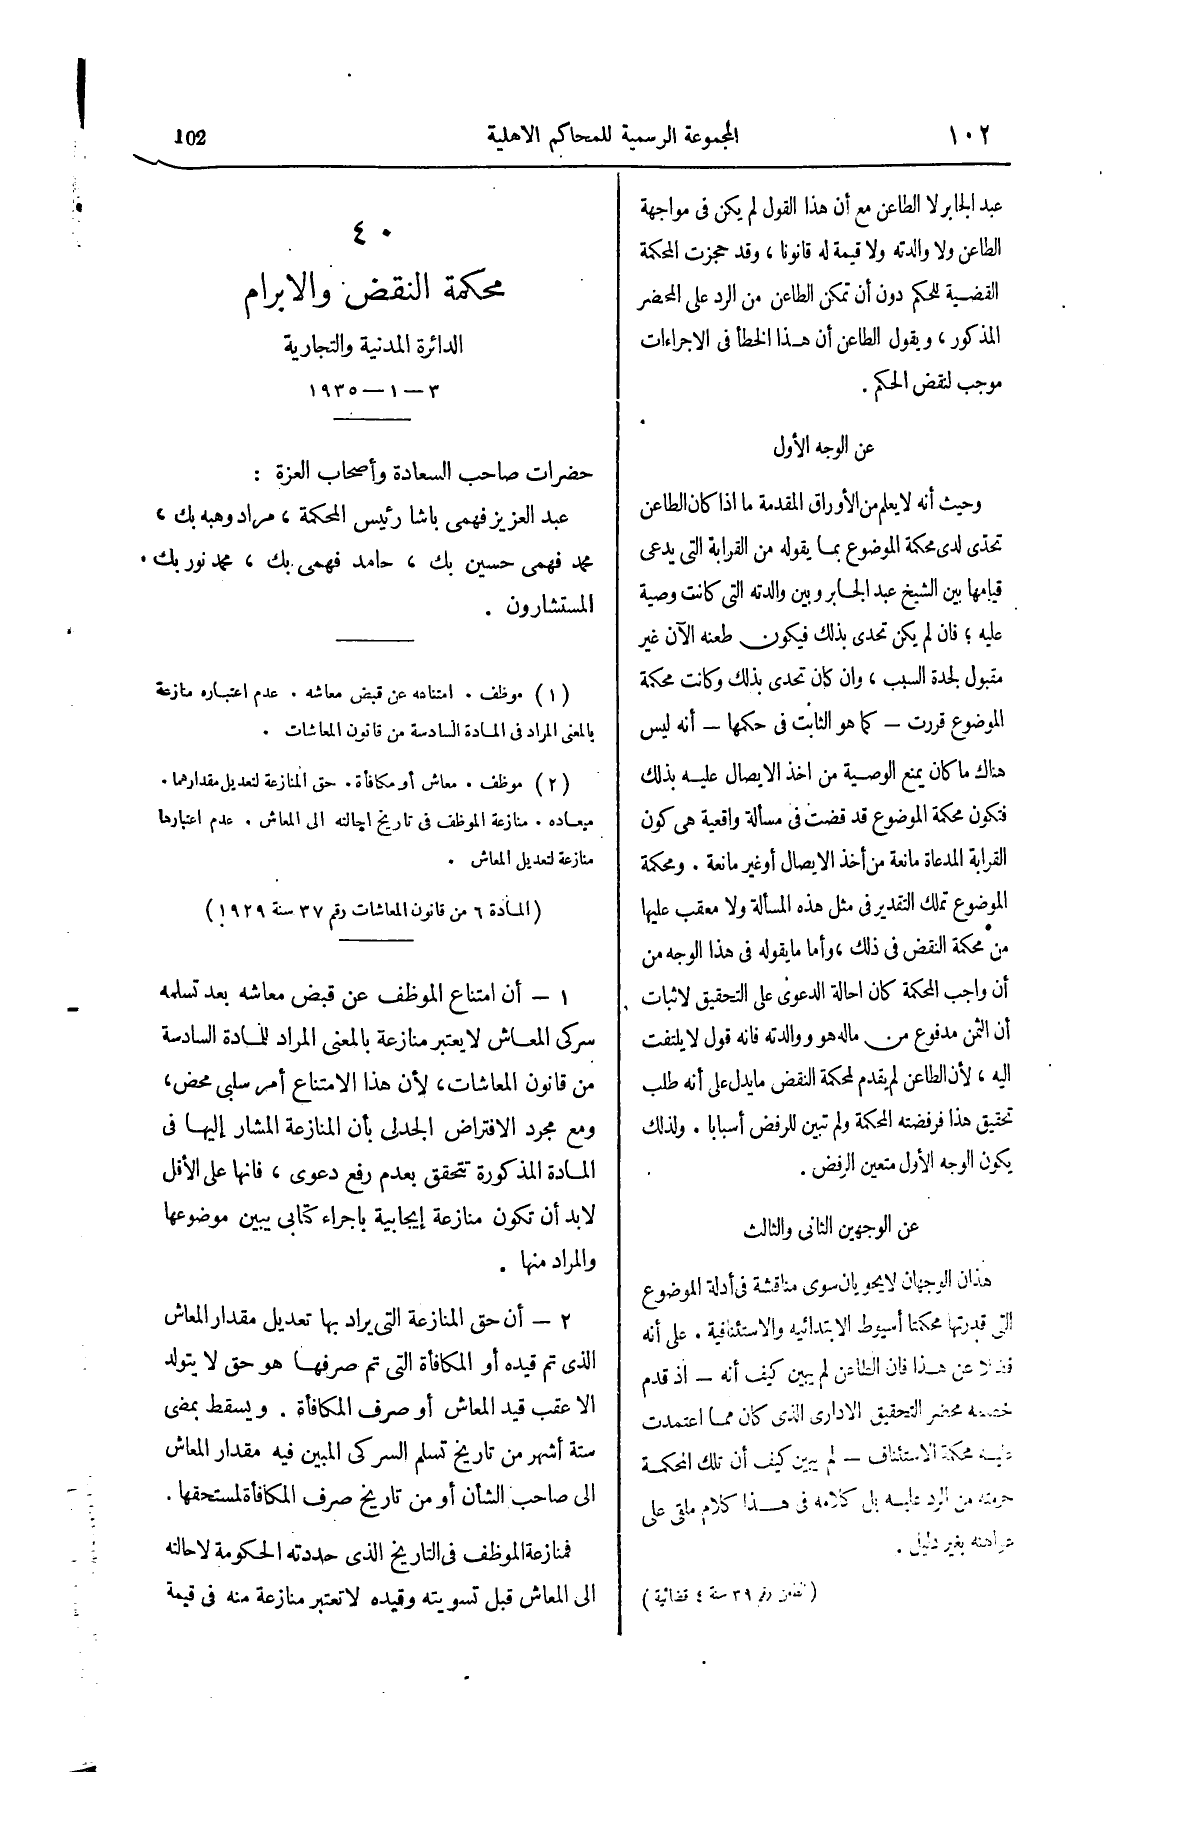 ١٠٢
المجموعة الرسمية للمحاكم الاهلية
102
عبد الجابر لا الطاعن مع أن هذا القول لم يكن فى مواجهة
الطاعن ولا والدته ولا قيمة له قانونا ، وقد حجزت المحكمة
القضية للحكم دون أن تمكن الطاعن من الرد على المحضر
المذكور ، ويقول الطاعن أن هذا الخطأ فى الاجراءات
موجب لنقض الحكم .
عن الوجه الأول
وحيث أنه لا يعلم من الأوراق المقدمة ما اذا كان الطاعن
تحدى لدى محكمة الموضوع بما يقوله من القرابة التى يدعى
قيامها بين الشيخ عبد الجابر وبين والدته التى كانت وصية
عليه ؛ فان لم يكن تحدى بذلك فيكون طعنه الآن غير
مقبول لجدة السبب ، وان كان تحدى بذلك وكانت محكمة
الموضوع قررت – كما هو الثابت فى حكمها – أنه ليس
هناك ما كان يمنع الوصية من اخذ الايصال عليه بذلك
فتكون محكمة الموضوع قد قضت فى مسألة واقعية هى كون
القرابة المدعاة مانعة من أخذ الايصال أو غير مانعة . ومحكمة
الموضوع تملك التقدير فى مثل هذه المسألة ولا معقب عليها
من محكمة النقض فى ذلك ، وأما ما يقوله فى هذا الوجه من
أن واجب المحكمة كان احالة الدعوى على التحقيق لاثبات
أن الثمن مدفوع من ماله هو ووالدته فانه قول لا يلتفت
اليه ، لأن الطاعن لم يقدم لمحكمة النقض ما يدل على أنه طلب
تحقيق هذا فرفضته المحكمة ولم تبين للرفض أسبابا . ولذلك
يكون الوجه الأول متعين الرفض .
عن الوجهين الثانى والثالث
هذان الوجهان لا يحويان سوى مناقشة فى أدلة الموضوع
التى قدرتها محكمتا أسيوط الابتدائية والاستئنافية . على أنه
فضلا عن هذا فان الطاعن لم يبين كيف أنه – اذ قدم
خصمه محضر التحقيق الادارى الذى كان مما اعتمدت
عليه محكمة الاستئناف – لم يبين كيف أن تلك المحكمة
حرمته من الرد عليه بل كلامه فى هذا كلام ملقى على
عواهنه بغير دليل .
( طعن رقم ٣٩ سنة ٤ قضائية )
٤٠
محكمة النقض والابرام
الدائرة المدنية والتجارية
٣ – ١ – ١٩٣٥
حضرات صاحب السعادة وأصحاب العزة :
عبد العزيز فهمى باشا رئيس المحكمة ، مراد وهبه بك ،
محمد فهمى حسين بك ، حامد فهمى بك ، محمد نور بك .
المستشارون .
(١) موظف . امتناعه عن قبض معاشه . عدم اعتباره منازعة
بالمعنى المراد فى المادة السادسة من قانون المعاشات .
(٢) موظف . معاش أو مكافأة . حق المنازعة لتعديل مقدارهما .
ميعاده . منازعة الموظف فى تاريخ احالته الى المعاش . عدم اعتبارها
منازعة لتعديل المعاش .
(المادة ٦ من قانون المعاشات رقم ٣٧ سنة ١٩٢٩)
١ – أن امتناع الموظف عن قبض معاشه بعد تسلمه
سركى المعاش لا يعتبر منازعة بالمعنى المراد للمادة السادسة
من قانون المعاشات، لأن هذا الامتناع أمر سلبى محض،
ومع مجرد الافتراض الجدلى بأن المنازعة المشار إليها فى
المادة المذكورة تتحقق بعدم رفع دعوى ، فانها على الأقل
لابد أن تكون منازعة إيجابية باجراء كتابى يبين موضوعها
والمراد منها .
٢ – أن حق المنازعة التى يراد بها تعديل مقدار المعاش
الذى تم قيده أو المكافأة التى تم صرفها هو حق لا يتولد
الا عقب قيد المعاش أو صرف المكافأة . ويسقط بمضى
ستة أشهر من تاريخ تسلم السركى المبين فيه مقدار المعاش
الى صاحب الشأن أو من تاريخ صرف المكافأة لمستحقها .
فمنازعة الموظف فى التاريخ الذى حددته الحكومة لاحالته
الى المعاش قبل تسويته وقيده لا تعتبر منازعة منه فى قيمة